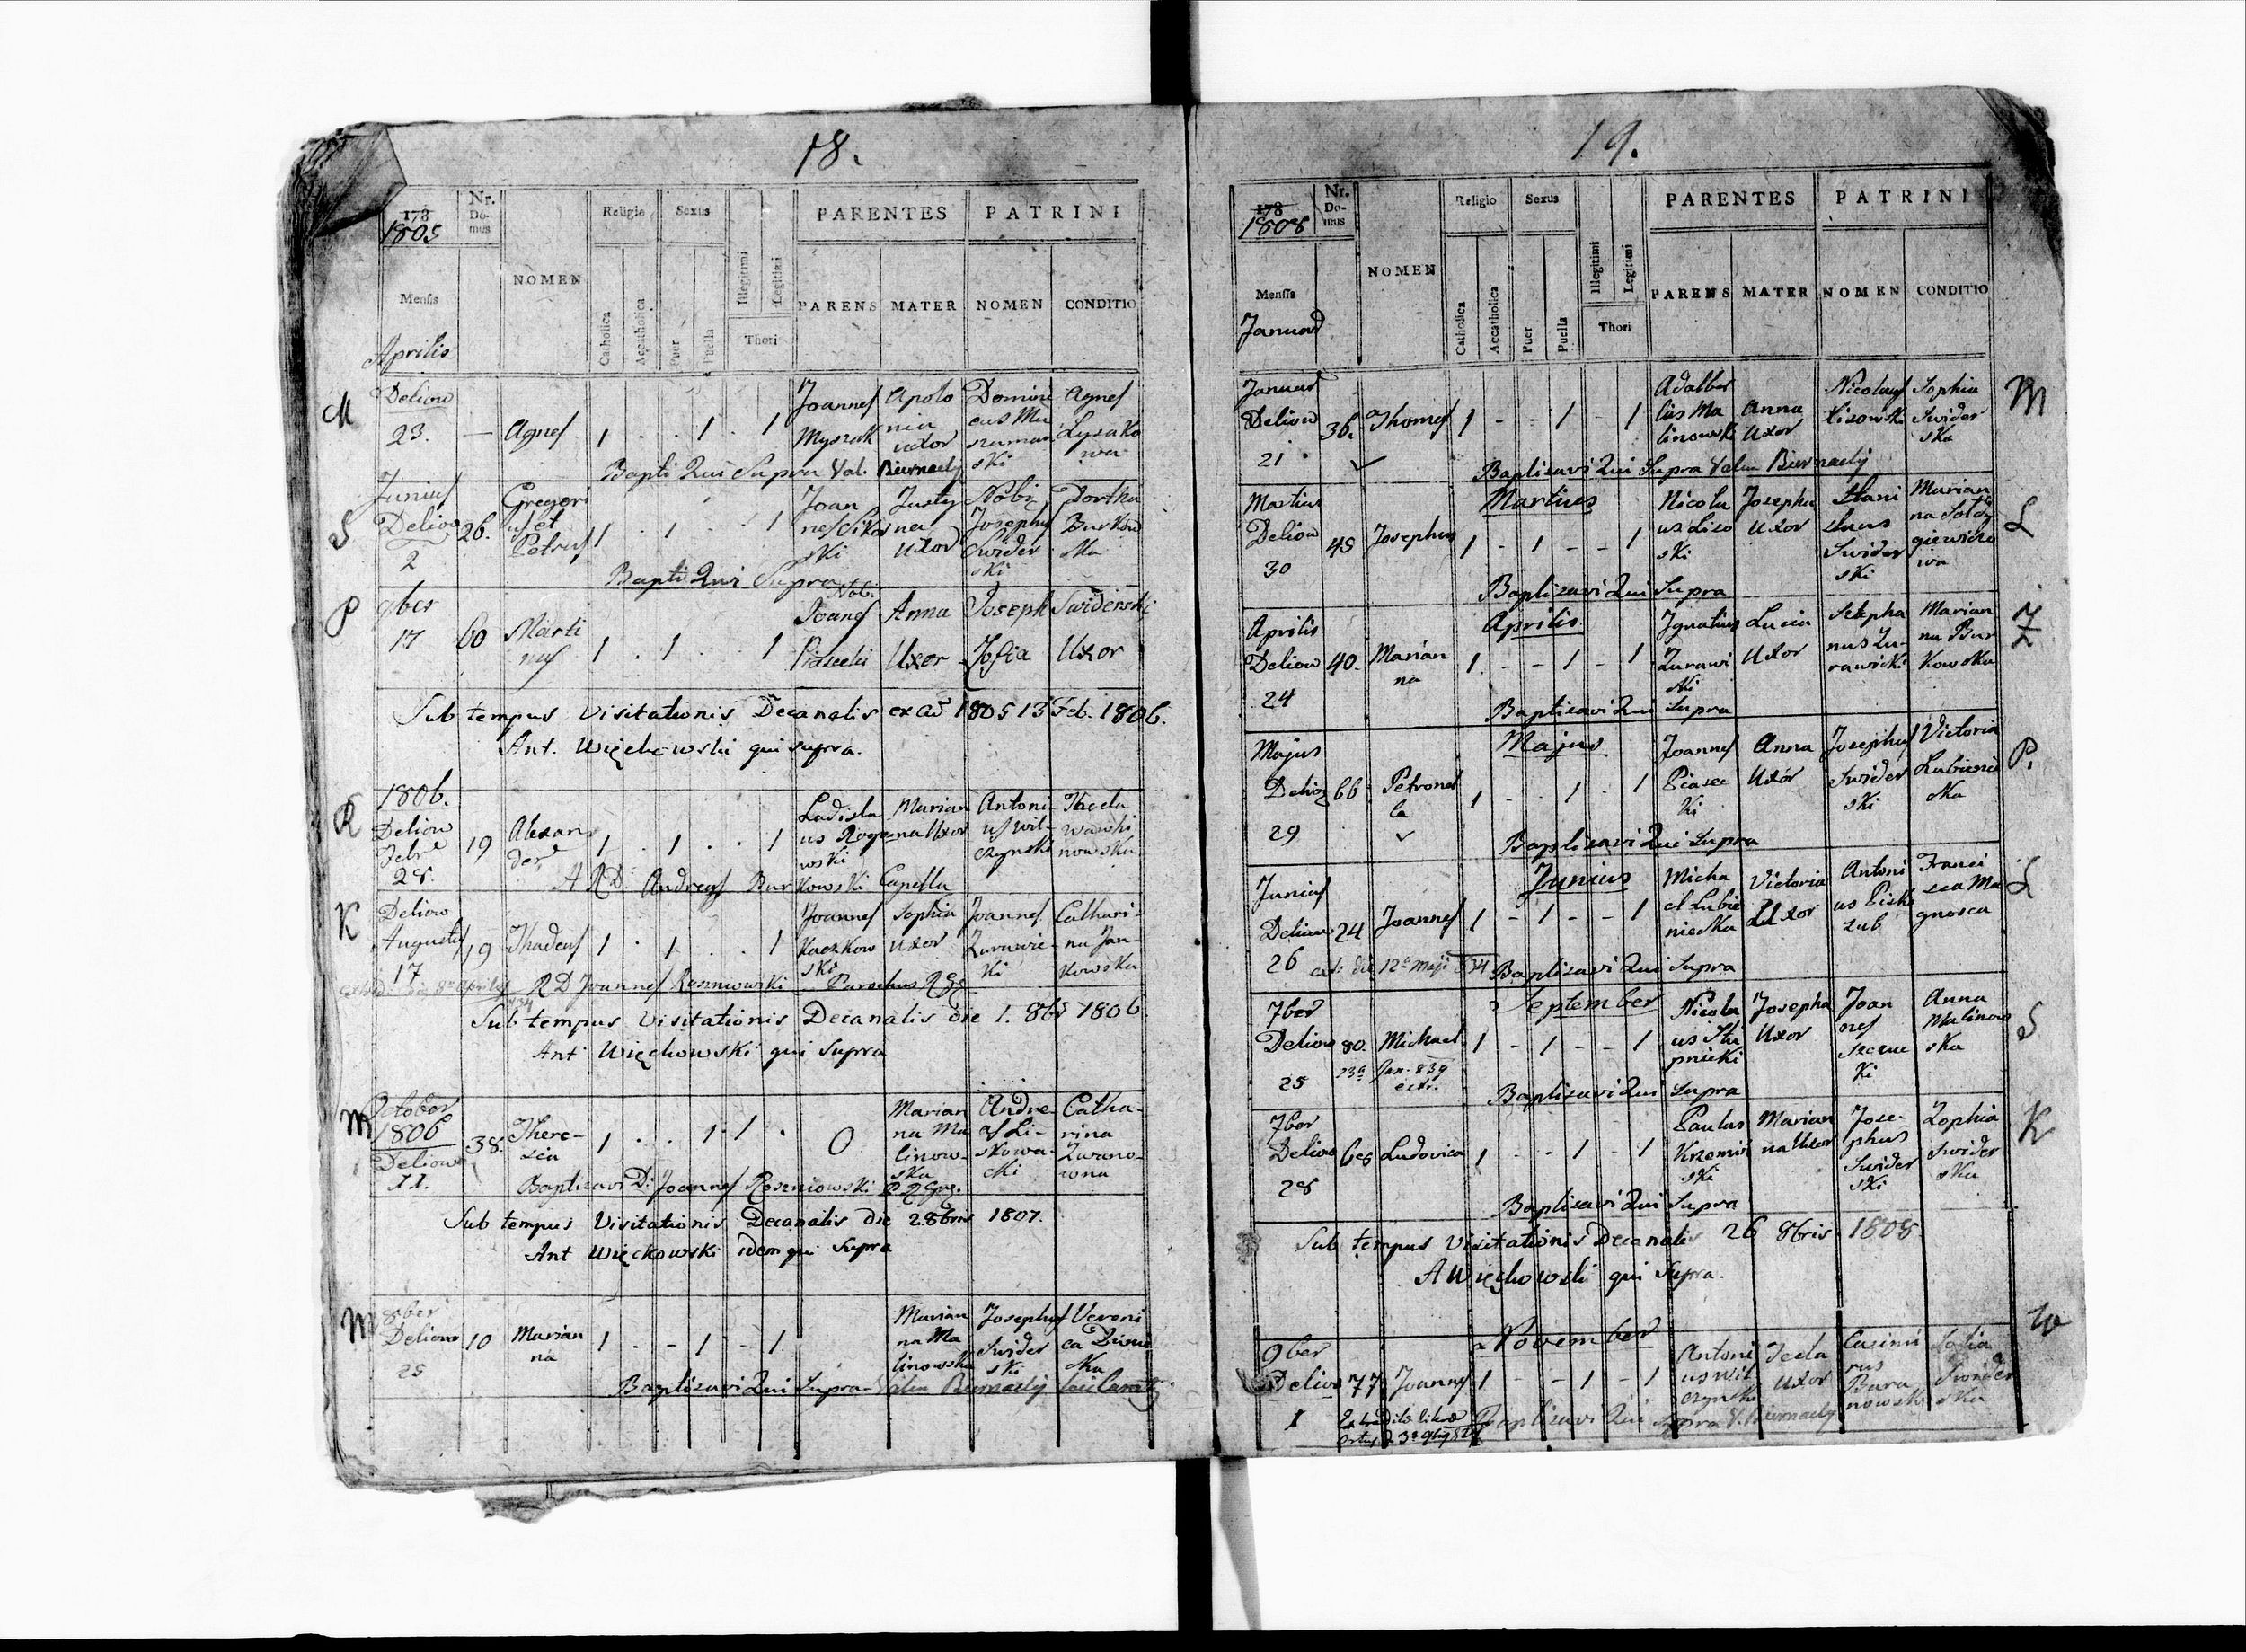 18.
178
1805
Nr.
Do-
mus
NOMEN
Religio
Sexus
Illegitimi
Legitimi
PARENTES
PATRINI
Mensis
Catholica
Accatholica
Puer
Puella
Thori
PARENS
MATER
NOMEN
CONDITIO
Aprilis
M
Deliow
23.
—
Agnes
1 . . 1 . 1
Joannes
Myszak
Apolo
nia
uxor
Domini
cus Mu
szuman
ski
Agnes
Lysako
wa
Bapti Qui Supra Val. Biernacky
S
Junius
Deliow
2
26.
Gregori
us et
Petrus
1 . 1 . . 1
Joan
nes Siko
ski
Justy
na
Uxor
Nobi
Josephus
Swider
ski
Dorthea
Burkow
ska
Bapti Qui Supra
P
9ber
17
60
Marti
nus
1 . 1 . . 1
Nob.
Joanes
Piasecki
Anna
Uxer
Joseph
Zofia
Swiderski
Uxor
Sub tempus Visitationis Decanalis ex ad 1805 13 Feb. 1806.
Ant. Więckowski qui supra.
1806.
R
Deliow
Febr
28.
19
Alexan
der
1 . 1 . . 1
Ladisla
us Rogo
wski
Marian
na Uxor
Antoni
us Wil-
czynski
Thecla
nowska
A R D. Andreas Burkowski Capella
K
Deliow
Augustus
17
19
Thadeus
1 . 1 . . 1
Joannes
Kaczkow
ski
Sophia
Uxor
Joannes
Zurawic-
ki
Cathari-
na Jan-
kowska
R D Joannes Roszniowski Parochus
Sub tempus Visitationis Decanalis die 1. 8br 1806.
Ant Więckowski qui supra
M
October
1806
Deliow
11.
38.
There-
sia
1 . . 1 . 1 .
0
Marian
na Ma
linow-
ska
Andre-
as Li-
skowa-
cki
Catha-
rina
Zurano-
wna
Baptisavi D. Joannes Roszniowski
Sub tempus Visitationis Decanalis die 2 8bris 1807.
Ant Więckowski idem qui supra
M
8ber
Deliow
25
10
Marian
na
1 - - 1 - 1
Marian
na Ma
linowska
Josephus
Swider
ski
Veroni
ca
Baptisavi Qui Supra Valen Biernacky
19.
178
1808
Nr.
Do-
mus
NOMEN
Religio
Sexus
Illegitimi
Legitimi
PARENTES
PATRINI
Mensis
Catholica
Accatholica
Puer
Puella
Thori
PARENS
MATER
NOMEN
CONDITIO
Januar
Januar
Deliow
21
36.
Thomas
1 - - 1 - 1
Adalber
tus Ma
linowski
Anna
Uxor
Nicolaus
Lisowski
Sophia
Swider
ska
M
Baptisavi Qui Supra Valen Biernacky
Martius
Martius
Deliow
30
45
Josephus
1 - 1 - - 1
Nicola
us Liso
ski
Josepha
Uxor
Stani
slaus
Swider
ski
Marian
na
L
Baptisavi Qui Supra
Aprilis
Aprilis
Deliow
24
40.
Marian
na
1 - - 1 - 1
Ignatius
Zurawi
ski
Lucia
Uxor
Stepha
nus Zu-
rawicki
Marian
na Bur
kowska
Z
Baptisavi Qui Supra
Majus
Majus
Deliow
29
66
Petronel
la
1 . . 1 . 1
Joannes
Piasec
ki
Anna
Uxor
Josephus
Swider
ski
Victoria
Lubienie
cka
P.
Baptisavi Qui Supra
Junius
Junius
Deliow
26
24
Joannes
1 - 1 - - 1
Micha
el Lubie
niecka
Victoria
Uxor
Antoni
us Pisk
zub
Franci
sca Ma
gnosca
L
die 12ª Maji 834
Baptisavi Qui Supra
7ber
September
Deliow
25
80.
Michael
1 - 1 - - 1
Nicola
us Stu
pnicki
Josepha
Uxor
Joan
nes
Anna
Malinow
ska
S
23ª Jan. 839
extr.
Baptisavi Qui Supra
7ber
Deliow
28
Ludovica
1 - - 1 - 1
Paulus
Krzemin
ski
Marian
na Uxor
Jose-
phus
Swider
ski
Zophia
Swider
ska
K
Baptisavi Qui Supra
Sub tempus Visitationis Decanalis 26 8bris 1808.
A Więckowski qui Supra.
9ber
November
Deliow
1
77
Joannes
1 - - 1 - 1
Antoni
us Wil
czynski
Tecla
Uxor
Casimi
rus
Bara
nowski
Sofia
Swider
ska
W
Baptisavi Qui Supra V. Biernacky